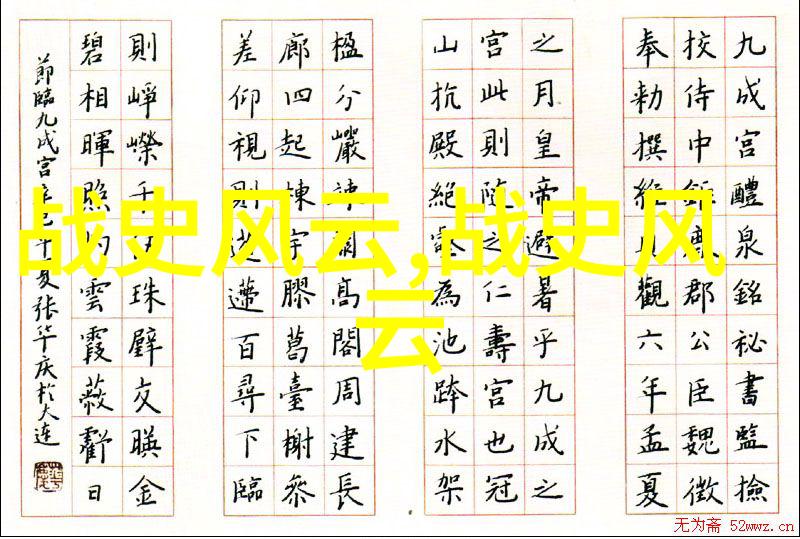 九成宮醴泉銘祕書監撿
挍侍中鉅鹿郡公臣魏徵
奉勅撰維貞觀六年孟夏
之月皇帝避暑乎九成之
宮此則隨之仁壽宮也冠
山抗殿絕壑為池跨水架
楹分巖竦闕高閣周建長
廊四起棟宇膠葛臺榭參
差仰視則迢遰百尋下臨
則崢嶸千仞珠璧交暎金
碧相暉照灼雲霞蔽虧日
節臨九成宮辛巳年夏张华庆於大連
战史风云,战史风
云
无为斋 52wwz.cn